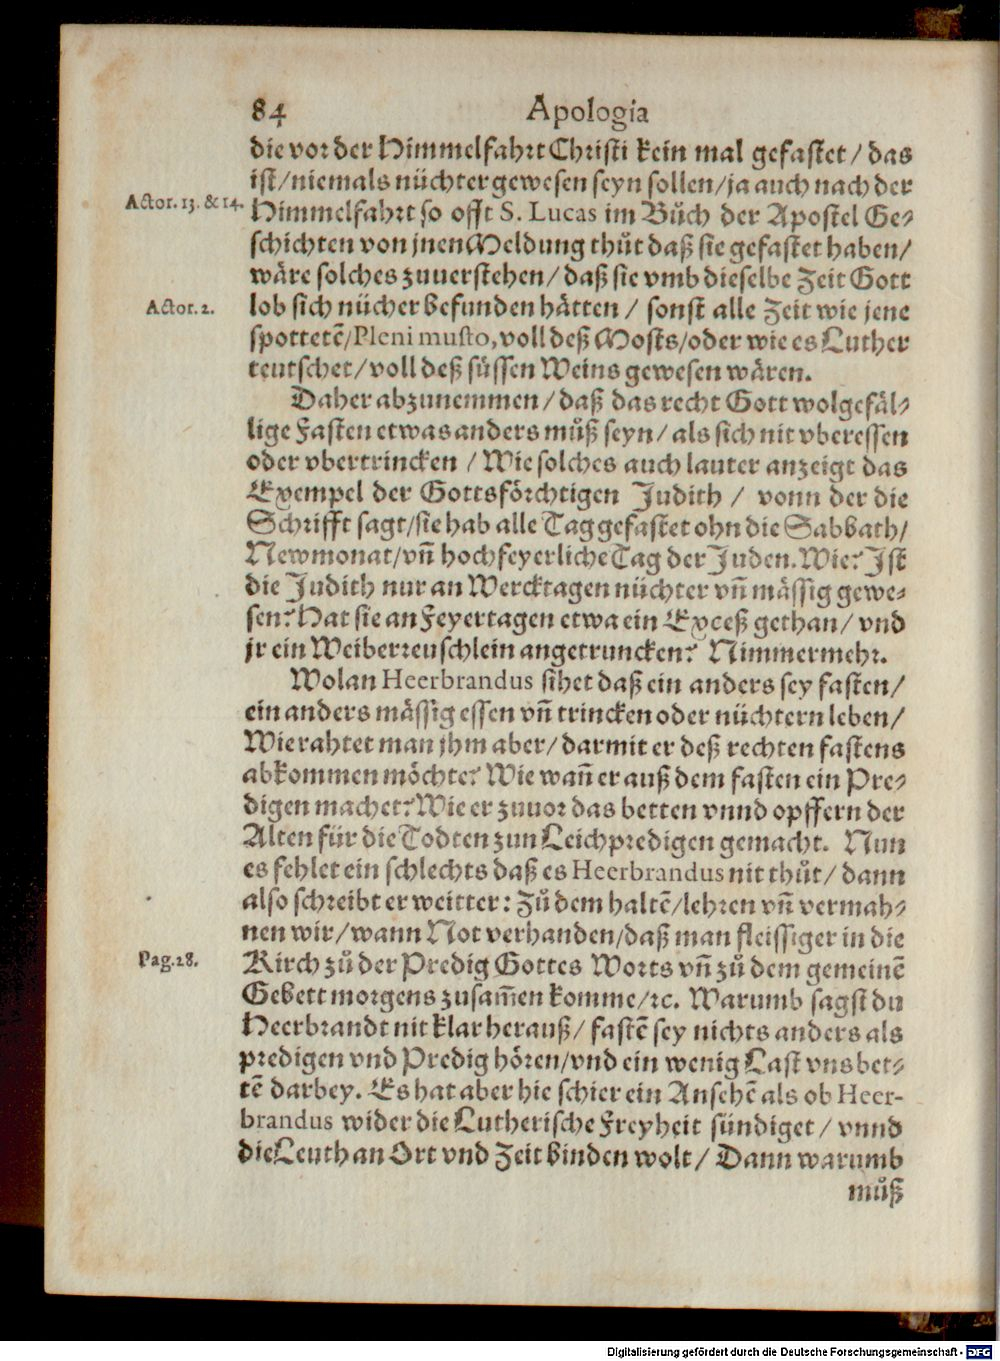 84 Apologia
die vor der Himmelfahrt Christi kein mal gefastet / das
ist / niemals nüchter gewesen seyn sollen / ja auch nach der
Actor. 13. & 14.
Himmelfahrt so offt S. Lucas im Bůch der Apostel Ge-
schichten von jnen Meldung thůt daß sie gefastet haben /
wäre solches zuuerstehen / daß sie vmb dieselbe Zeit Gott
Actor. 2.
lob sich nücher befunden hätten / sonst alle Zeit wie jene
spottetẽ / Pleni musto, voll deß Mosts / oder wie es Luther
teutschet / voll deß süssen Weins gewesen wären.
Daher abzunemmen / daß das recht Gott wolgefäl-
lige Fasten etwas anders můß seyn / als sich nit vberessen
oder vbertrincken / Wie solches auch lauter anzeigt das
Exempel der Gottsförchtigen Judith / vonn der die
Schrifft sagt / sie hab alle Tag gefastet ohn die Sabbath /
Newmonat / vñ hochfeyerliche Tag der Juden. Wie? Ist
die Judith nur an Wercktagen nüchter vñ mässig gewe-
sen? Hat sie an Feyertagen etwa ein Exceß gethan / vnd
jr ein Weiberreuschlein angetruncken? Nimmermehr.
Wolan Heerbrandus sihet daß ein anders sey fasten /
ein anders mässig essen vñ trincken oder nüchtern leben /
Wie rahtet man jhm aber / darmit er deß rechten fastens
abkommen möchte? Wie wañ er auß dem fasten ein Pre-
digen machet? Wie er zuuor das betten vnnd opffern der
Alten für die Todten zun Leichpredigen gemacht. Nun
es fehlet ein schlechts daß es Heerbrandus nit thůt / dann
also schreibt er weitter: Zů dem haltẽ / lehren vñ vermah-
nen wir / wann Not verhanden / daß man fleissiger in die
Pag. 28.
Kirch zů der Predig Gottes Worts vñ zů dem gemeinẽ
Gebett morgens zusam̃en komme / ꝛc. Warumb sagst du
Heerbrandt nit klar herauß / fastẽ sey nichts anders als
predigen vnd Predig hören / vnd ein wenig Last vns bet-
tẽ darbey. Es hat aber hie schier ein Ansehẽ als ob Heer-
brandus wider die Lutherische Freyheit sündiget / vnnd
die Leuth an Ort vnd Zeit binden wolt / Dann warumb
můß
Digitalisierung gefördert durch die Deutsche Forschungsgemeinschaft - DFG